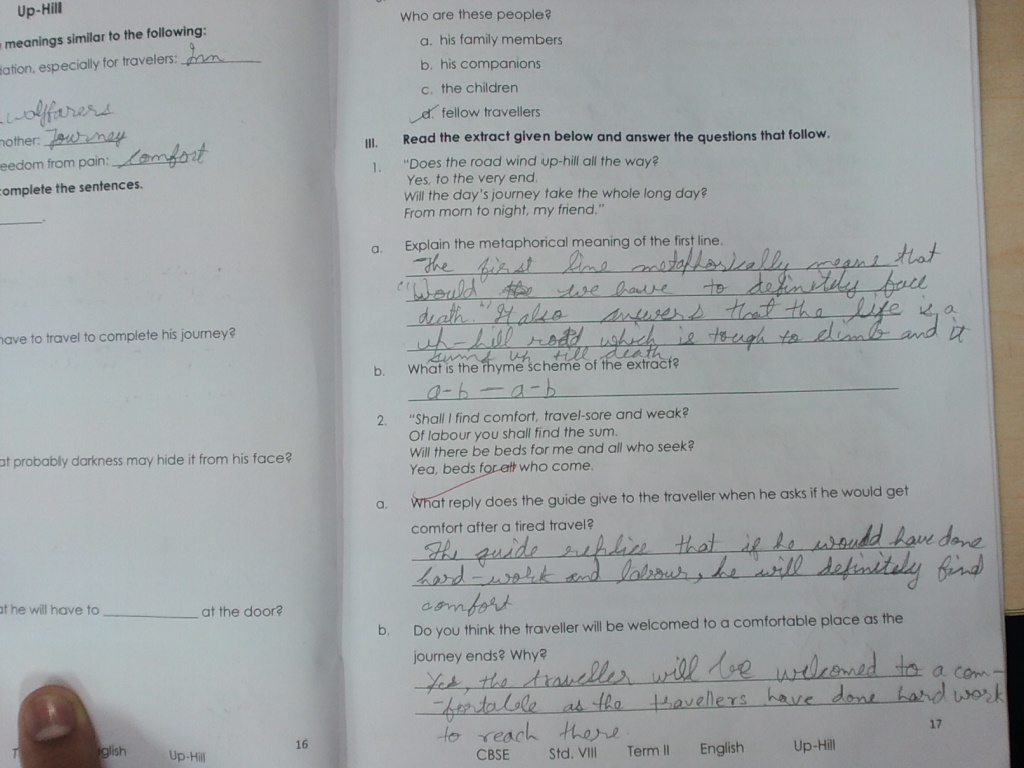 Up-Hill
meanings similar to the following:
iation, especially for travelers: Inn
wolffarers
nother: Journey
eedom from pain: comfort
omplete the sentences.
have to travel to complete his journey?
at probably darkness may hide it from his face?
at he will have to __________ at the door?
glish Up-Hill 16
Who are these people?
a. his family members
b. his companions
c. the children
d. fellow travellers
III. Read the extract given below and answer the questions that follow.
1. "Does the road wind up-hill all the way?
Yes, to the very end.
Will the day's journey take the whole long day?
From morn to night, my friend."
a. Explain the metaphorical meaning of the first line.
The first line metaphorically means that
"Would we have to definitely face
death." It also answers that the life is a
up-hill road which is tough to climb and it
sums up till death
b. What is the rhyme scheme of the extract?
a-b — a-b
2. "Shall I find comfort, travel-sore and weak?
Of labour you shall find the sum.
Will there be beds for me and all who seek?
Yea, beds for all who come.
a. What reply does the guide give to the traveller when he asks if he would get
comfort after a tired travel?
The guide replice that if he would have done
hard-work and labour, he will definitely find
comfort
b. Do you think the traveller will be welcomed to a comfortable place as the
journey ends? Why?
Yes, the traveller will be welcomed to a com-
-fortable as the travellers have done hard work
to reach there.
CBSE Std. VIII Term II English Up-Hill 17